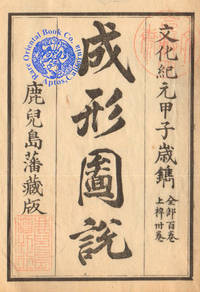 文化紀元甲子歳鐫
全部百巻
上梓卅巻
成形圖說
鹿兒島藩藏版
Rare Oriental Book Co.
Aptos,